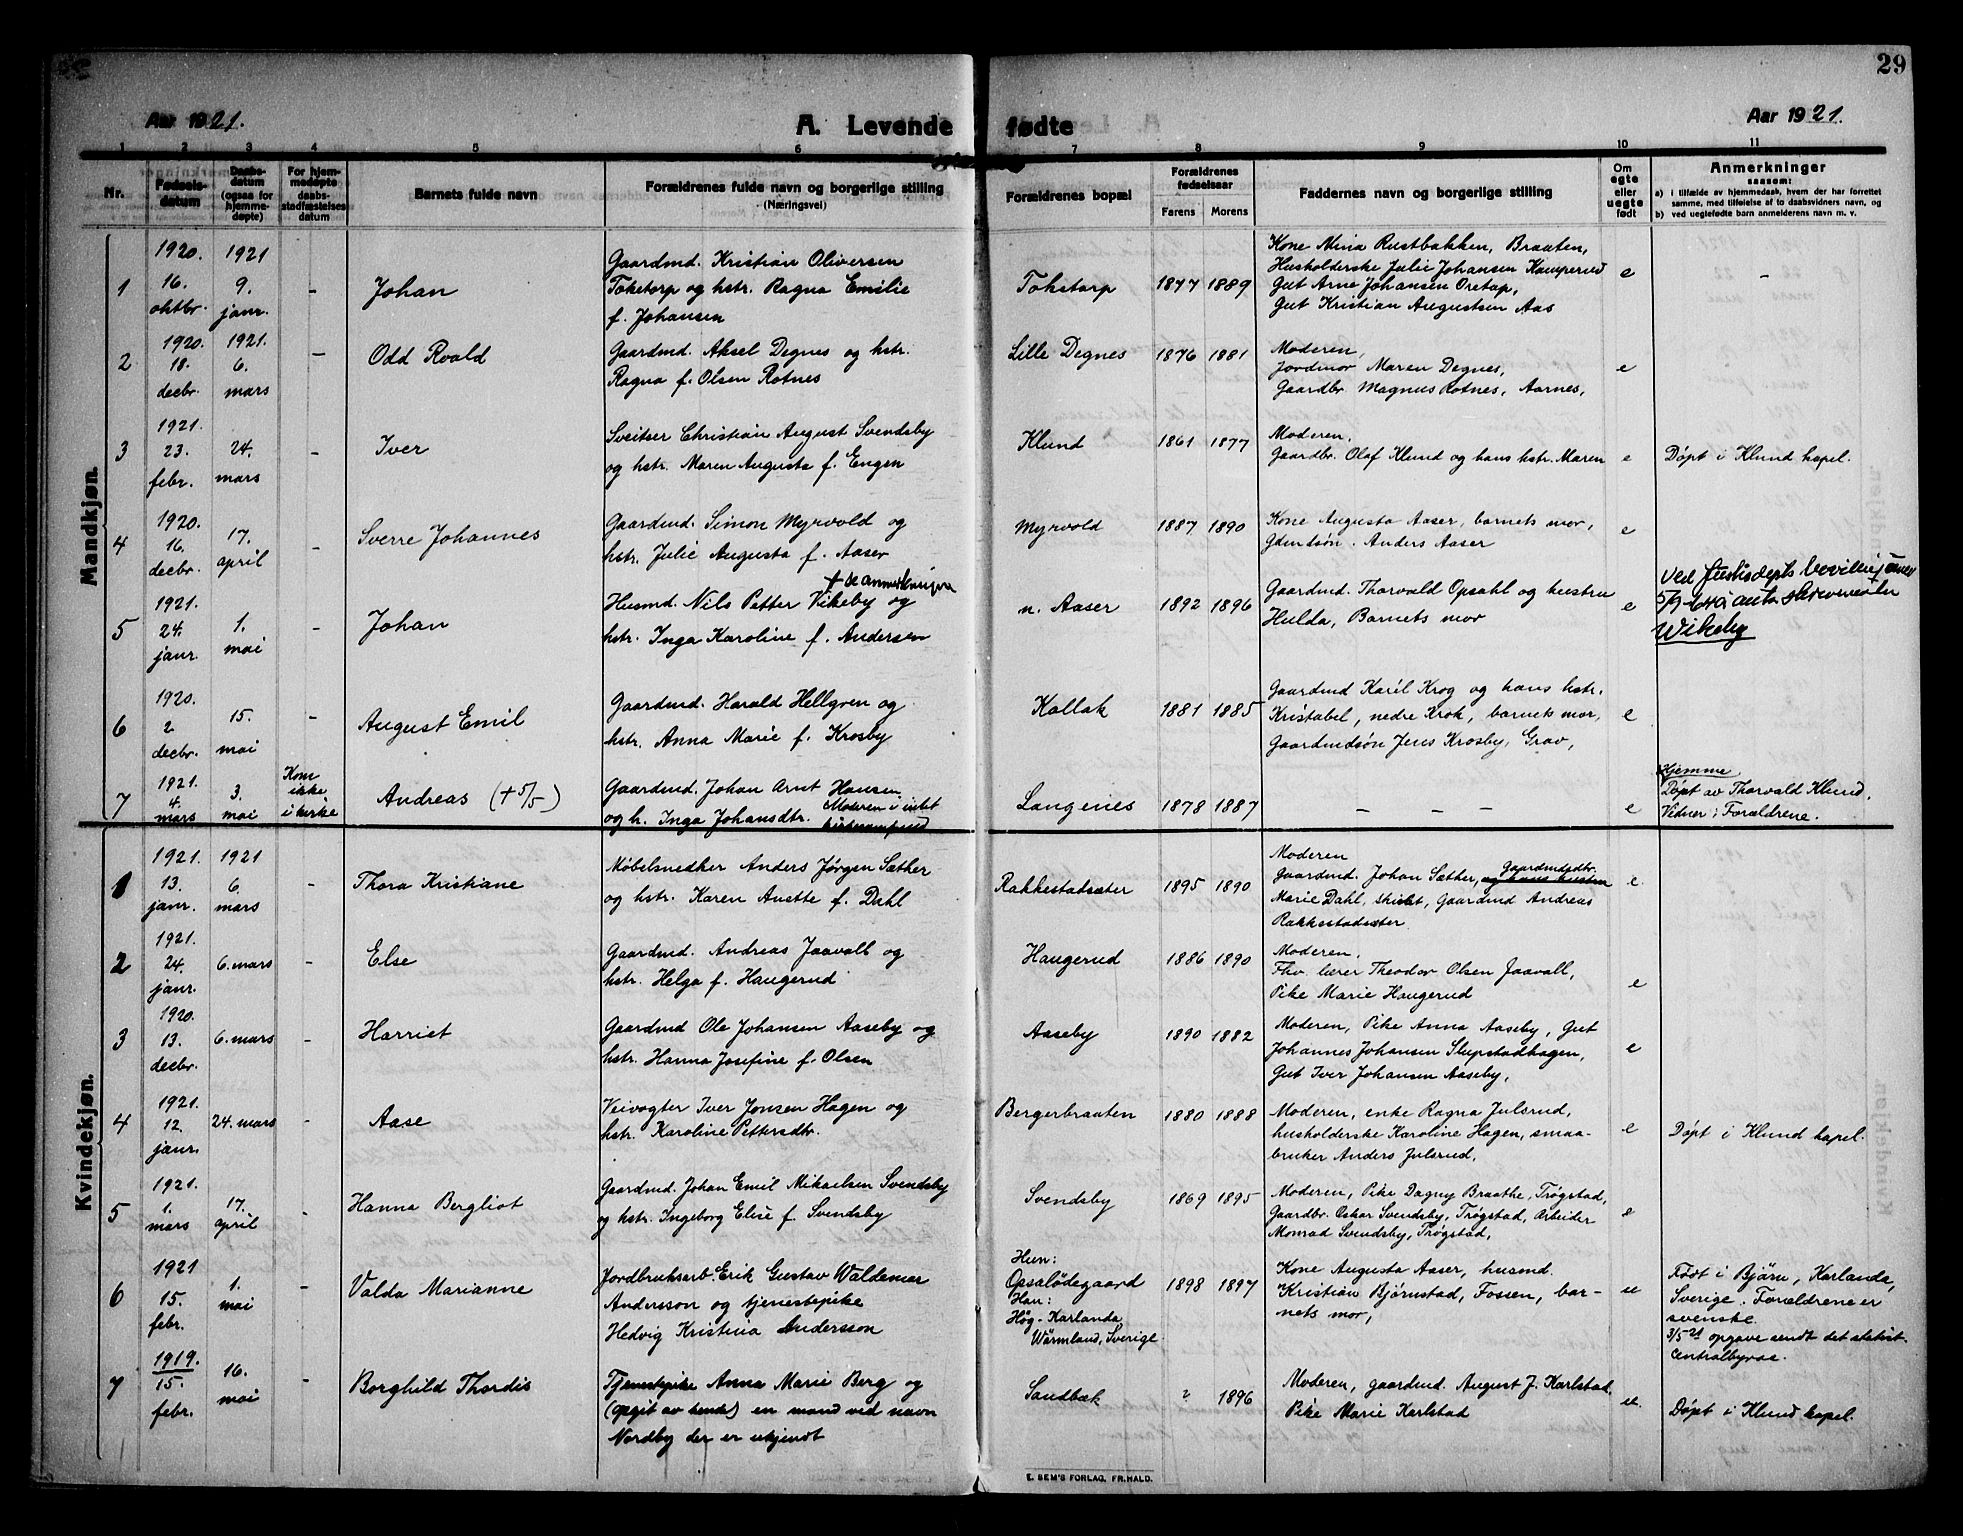 29
Aar 1921.
A. Levende fødte
Aar 1921.
1 2 3 4 5 6 7 8 9 10 11
Nr.
Fødsels-
datum
Daabs-
datum
(ogsaa for
hjemme-
døpte)
For hjem-
medøpte
daabs-
stadfæstelses
datum
Barnets fulde navn
Forældrenes fulde navn og borgerlige stilling
(Næringsvei)
Forældrenes bopæl
Forældrenes
fødselsaar
Farens Morens
Faddernes navn og borgerlige stilling
Om
egte
eller
uegte
født
Anmerkninger
saasom:
a) i tilfælde av hjemmedaab, hvem der har forrettet
samme, med tilføielse af to daabsvidners navn, og
b) ved uegtefødte barn anmelderens navn m. v.
Mandkjøn.
1
1920.
16.
oktbr.
1921
9.
janr.
-
Johan
Gaardmd. Kristian Oliversen
Toketorp og hstr. Ragna Emilie
f. Johansen
Tokstorp
1877 1889
Kone Mina Rustbakken, Braaten,
Husholderske Julie Johansen Kamperud
Gut Arne Johansen Oretop,
Gut Kristian Augustsen Aas
e
-
2
1920.
18.
decbr.
1921.
6.
mars
-
Odd Roald
Gaardmd. Aksel Degnes og hstr.
Ragna f. Olsen Rotnes
Lille Degnes
1876 1881
Moderen,
Jordmor Maren Degnes,
Gaardbr. Magnus Rotnes, Aarnes,
e
3
1921.
23.
febr.
24.
mars
-
Iver
Sveitser Christian August Svendsby
og hstr. Maren Augusta f. Engen
Klund
1861 1877
Moderen,
Gaardbr. Olaf Klund og hans hstr. Maren
e
Døpt i Klund kapel.
4
1920.
16.
decbr.
17.
april
-
Sverre Johannes
Gaardmd. Simon Myrvold og
hstr. Julie Augusta f. Aaser
Myrvold
1887 1890
Kone Augusta Aaser, barnets mor,
Gdmdsøn. Anders Aaser
e
5
1921.
24.
janr.
1.
mai
-
Johan
+ se anmerkningen
Husmd. Nils Petter Vikeby og
hstr. Inga Karoline f. Andersen
n. Aaser
1892 1896
Gaardmd. Thorvald Opsahl og hustru
Hulda, Barnets mor
e
Ved Justisdepts bevilling
Wikeby
6
1920.
2
decbr.
15.
mai
-
August Emil
Gaardmd. Harald Hellgren og
hstr. Anna Marie f. Krosby
Kallak
1881 1885
Gaardmd Karél Krog og hans hstr.
Kristabel, nedre Krok, barnets mor,
Gaardmdsøn Jens Krosby, Grav,
e
7
1921.
4.
mars
3.
mai
Kom
ikke
i kirke
Andreas (+ 5/5)
Gaardmd. Johan Arnt Hansen
og h. Inga Johansdtr.
Langenes
1878 1887
- - -
e
Hjemme
Døpt av Thorvald Klund,
Vidner: Forældrene.
Kvindekjøn.
1
1921.
13.
janr.
1921
6.
mars
-
Thora Kristiane
Møbelsnedker Anders Jørgen Sæther
og hstr. Karen Anette f. Dahl
Rakkestadsæter
1895 1890
Moderen
Gaardmd. Johan Sæther, og hans hustru Gaardmdsdtr.
Marie Dahl, skibt, Gaardmd Andreas
Rakkestadsæter
e.
2
1921.
24.
janr.
6. mars
-
Else
Gaardmd. Andreas Jaavall og
hstr. Helga f. Haugerud
Haugerud
1886 1890
Moderen,
Fhv. lærer Theodor Olsen Jaavall,
Pike Marie Haugerud
e
3
1920.
13.
decbr.
6. mars
-
Harriet
Gaardmd Ole Johansen Aaseby og
hstr. Hanna Josefine f. Olsen
Aaseby
1890 1882
Moderen, Pike Anna Aaseby, Gut
Johannes Johansen Slupstadhagen,
Gut Iver Johansen Aaseby,
e
4
1921.
12.
janr.
24. mars
-
Aase
Veivogter Iver Jonsen Hagen og
hstr. Karoline Pettersdtr.
Bergerbraaten
1880 1888
Moderen, enke Ragna Julsrud,
husholderske Karoline Hagen, smaa-
bruker Anders Julsrud,
e
Døpt i Klund kapel.
5
1921.
1.
mars
17.
april
-
Hanna Bergliot
Gaardmd. Johan Emil Mikaelsen Svendsby
og hstr. Ingeborg Elise f. Svendsby
Svendsby
1869 1895
Moderen, Pike Dagny Braathe, Trøgstad,
Gaardbr. Oskar Svendsby, Trøgstad, Arbeider
Monrad Svendsby, Trøgstad,
e
6
1921
15.
febr.
1.
mai
-
Valda Marianne
Jordbruksarb. Erik Gustav Waldemar
Andersson og tjenestepike
Hedvig Kristina Andersson
Hun:
Opsalødegaard
Han:
Hög-Karlanda
Wärmland, Sverige.
1898 1897
Kone Augusta Aaser, husmd.
Kristian Bjørnstad, Fossen, bar-
nets mor,
ue
Født i Bjärn, Karlanda,
Sverige. Forældrene er
svenske.
3/5 21 opgave sendt det statist.
Centralbyraa.
7
1919.
15.
febr.
16.
mai
-
Borghild Thordis
Tjenestepike Anna Marie Berg og
(opgit av hende) en mand ved navn
Nordby der er ukjendt
Sandbæk
? 1896
Moderen, gaardmd. August J. Karlstad,
Pike Marie Karlstad
ue.
Døpt i Klund kapel.
E. SEM'S FORLAG, FR.HALD.